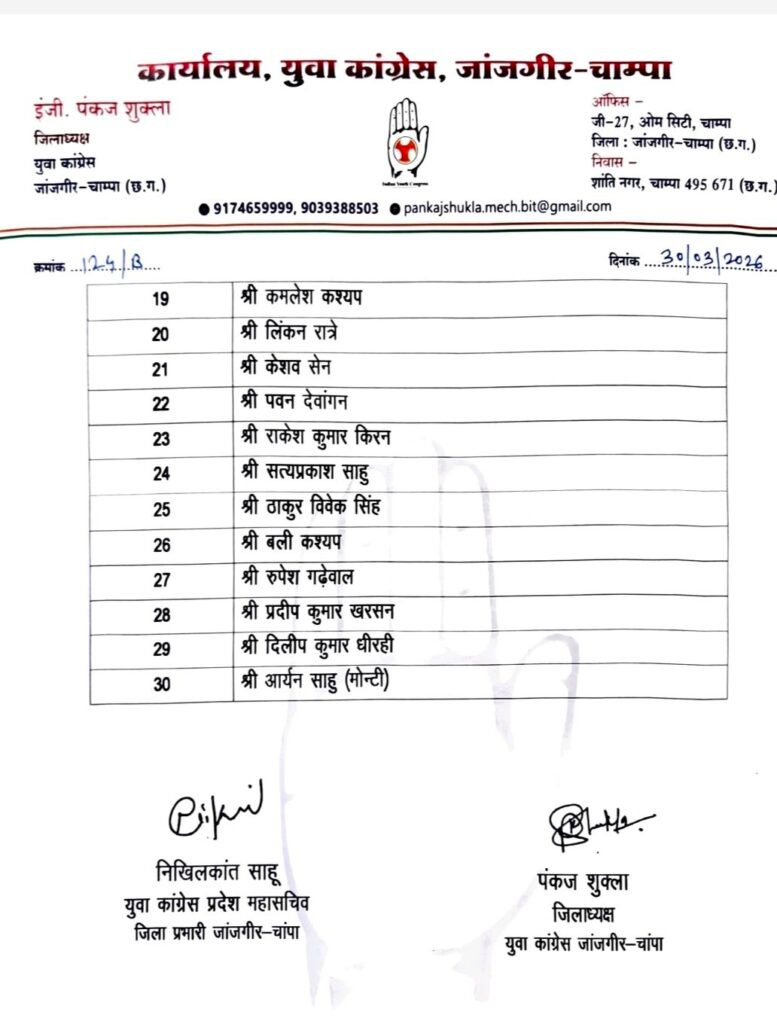 कार्यालय, युवा कांग्रेस, जांजगीर-चाम्पा
इंजी. पंकज शुक्ला
जिलाध्यक्ष
युवा कांग्रेस
जांजगीर-चाम्पा (छ.ग.)
Indian Youth Congress
ऑफिस -
जी-27, ओम सिटी, चाम्पा
जिला : जांजगीर-चाम्पा (छ.ग.)
निवास -
शांति नगर, चाम्पा 495 671 (छ.ग.)
● 9174659999, 9039388503 ● pankajshukla.mech.bit@gmail.com
क्रमांक ...124/B.... दिनांक ....30/03/2026
19 श्री कमलेश कश्यप
20 श्री लिंकन रात्रे
21 श्री केशव सेन
22 श्री पवन देवांगन
23 श्री राकेश कुमार किरन
24 श्री सत्यप्रकाश साहु
25 श्री ठाकुर विवेक सिंह
26 श्री बली कश्यप
27 श्री रुपेश गढ़ेवाल
28 श्री प्रदीप कुमार खरसन
29 श्री दिलीप कुमार धीरही
30 श्री आर्यन साहु (मोन्टी)
निखिलकांत साहू
युवा कांग्रेस प्रदेश महासचिव
जिला प्रभारी जांजगीर-चांपा
पंकज शुक्ला
जिलाध्यक्ष
युवा कांग्रेस जांजगीर-चांपा